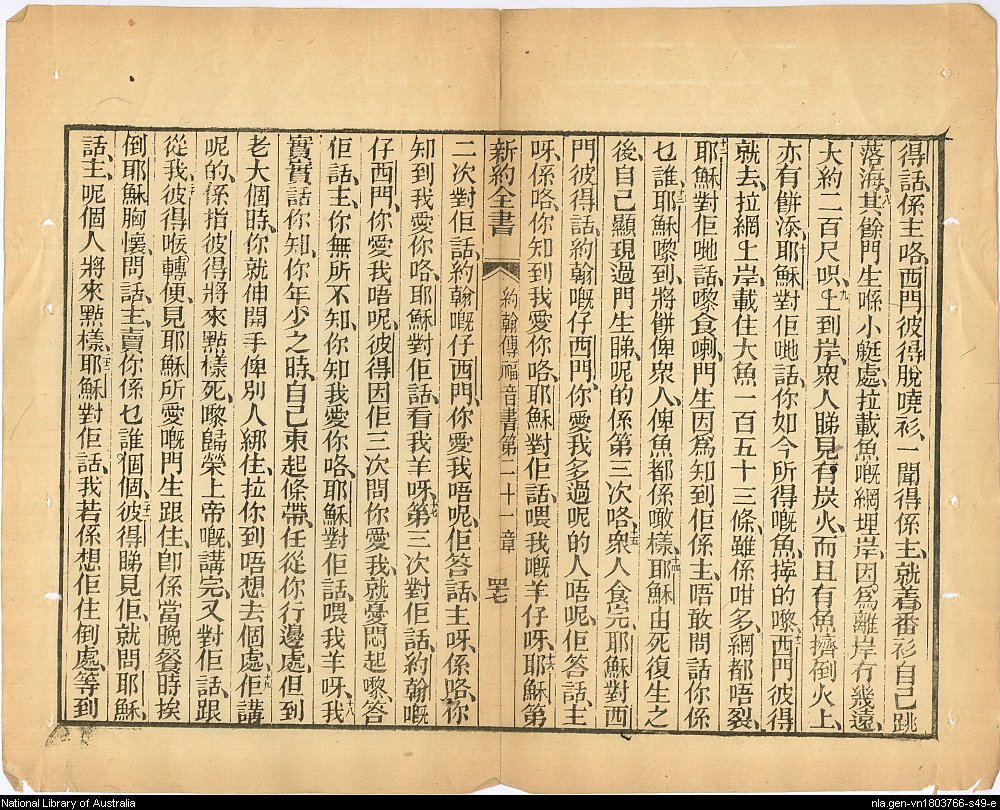 得話、係主咯、西門彼得脫嘵衫、一聞得係主、就着番衫自己跳
落海、八其餘門生喺小艇處、拉載魚嘅網埋岸、因爲離岸冇幾遠、
大約二百尺呮、九上到岸、衆人睇見有炭火、而且有魚擠倒火上、
亦有餅添、十耶穌對佢哋話、你如今所得嘅魚、擰的嚟、十一西門彼得
就去、拉網上岸、載住大魚一百五十三條、雖係咁多、網都唔裂、
十二耶穌對佢哋話、嚟食喇、門生因爲知到佢係主、唔敢問話、你係
乜誰、十三耶穌嚟到、將餅俾衆人、俾魚都係噉樣、十四耶穌由死復生之
後、自己顯現過門生睇、呢的係第三次咯、十五衆人食完、耶穌對西
門彼得話、約翰嘅仔西門、你愛我多過呢的人唔呢、佢答話、主
呀、係咯、你知到我愛你咯、耶穌對佢話、喂我嘅羊仔呀、十六耶穌第
新約全書 約翰傳福音書第二十一章 四七
二次對佢話、約翰嘅仔西門、你愛我唔呢、佢答話、主呀、係咯、你
知到我愛你咯、耶穌對佢話、看我羊呀、十七第三次對佢話、約翰嘅
仔西門、你愛我唔呢、彼得因佢三次問你愛我、就憂悶起嚟、答
佢話、主、你無所不知、你知我愛你咯、耶穌對佢話、喂我羊呀、十八我
實實話你知、你年少之時、自己束起條帶、任從你行邊處、但到
老大個時、你就伸開手、俾別人綁住、拉你到唔想去個處、十九佢講
呢的、係指彼得將來點樣死、嚟歸榮上帝嘅、講完、又對佢話、跟
從我、二十彼得喉轉便、見耶穌所愛嘅門生跟住、卽係當晚餐時挨
倒耶穌胸懷、問話、主、賣你係乜誰個個、二一彼得睇見佢、就問耶穌
話、主、呢個人將來點樣、二二耶穌對佢話、我若係想佢住倒處、等到
National Library of Australia
nla.gen-vn1803766-s49-e